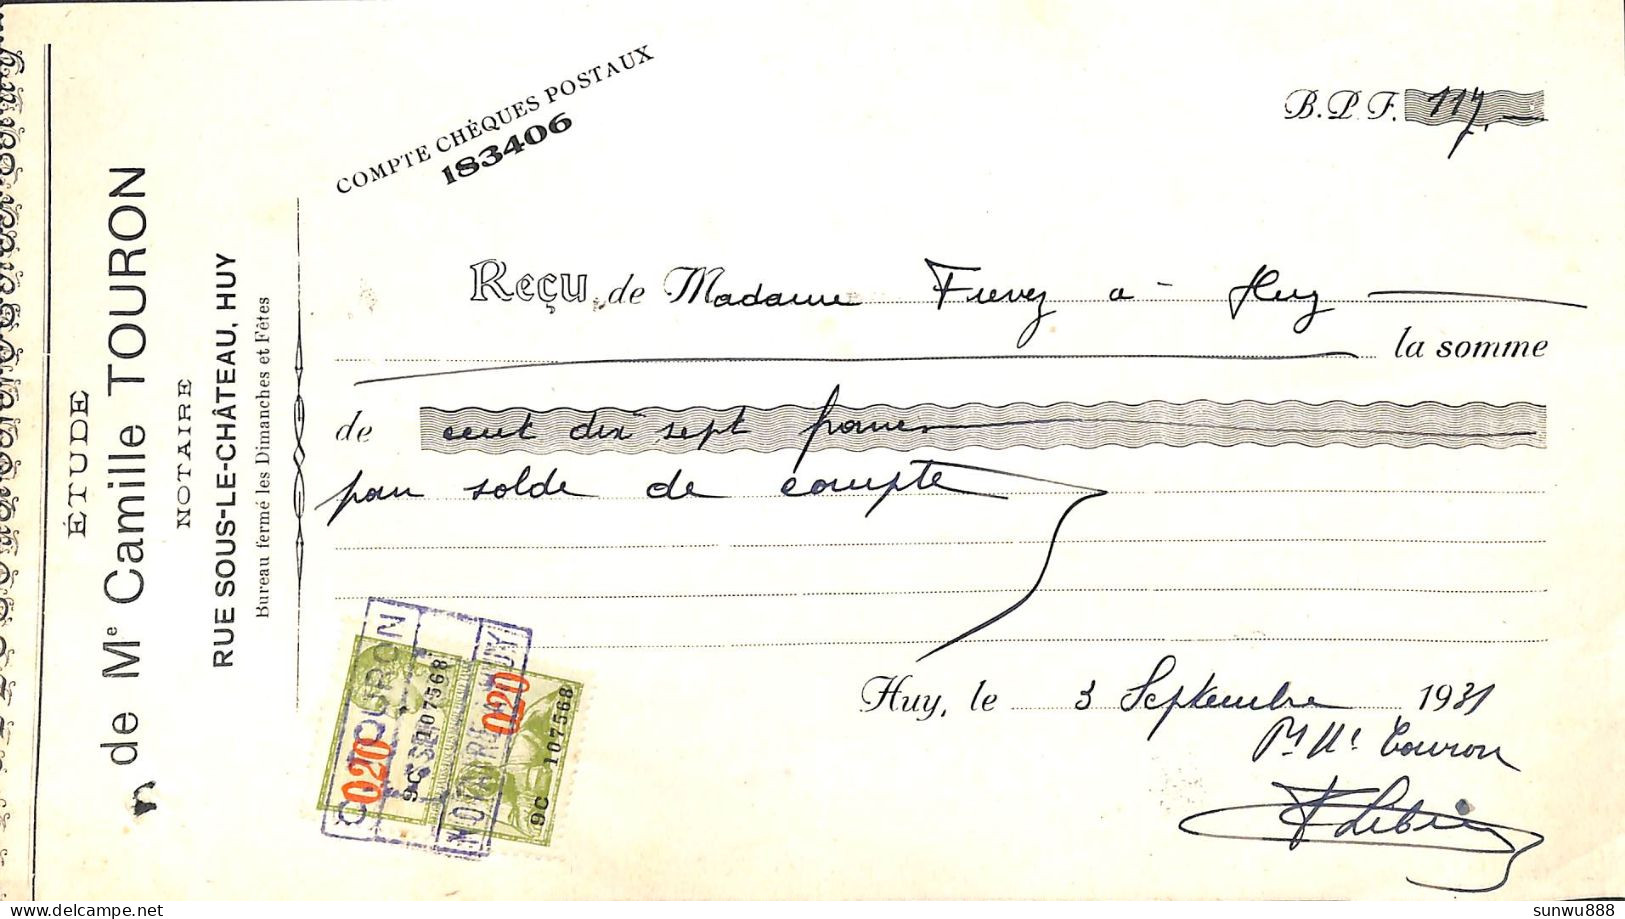 ÉTUDE
de Mᵉ Camille TOURON
NOTAIRE
RUE SOUS-LE-CHÂTEAU, HUY
Bureau fermé les Dimanches et Fêtes
COMPTE CHÈQUES POSTAUX
183406
B.P.F. 117,—
Reçu de Madame Frevez a Huy
la somme
de cent dix sept francs
pour solde de compte
Huy, le 3 Septembre 1931
Pr Me Touron
C. TOURON
NOTAIRE A HUY
020
9C 107568
020
9C 107568
sunwu888